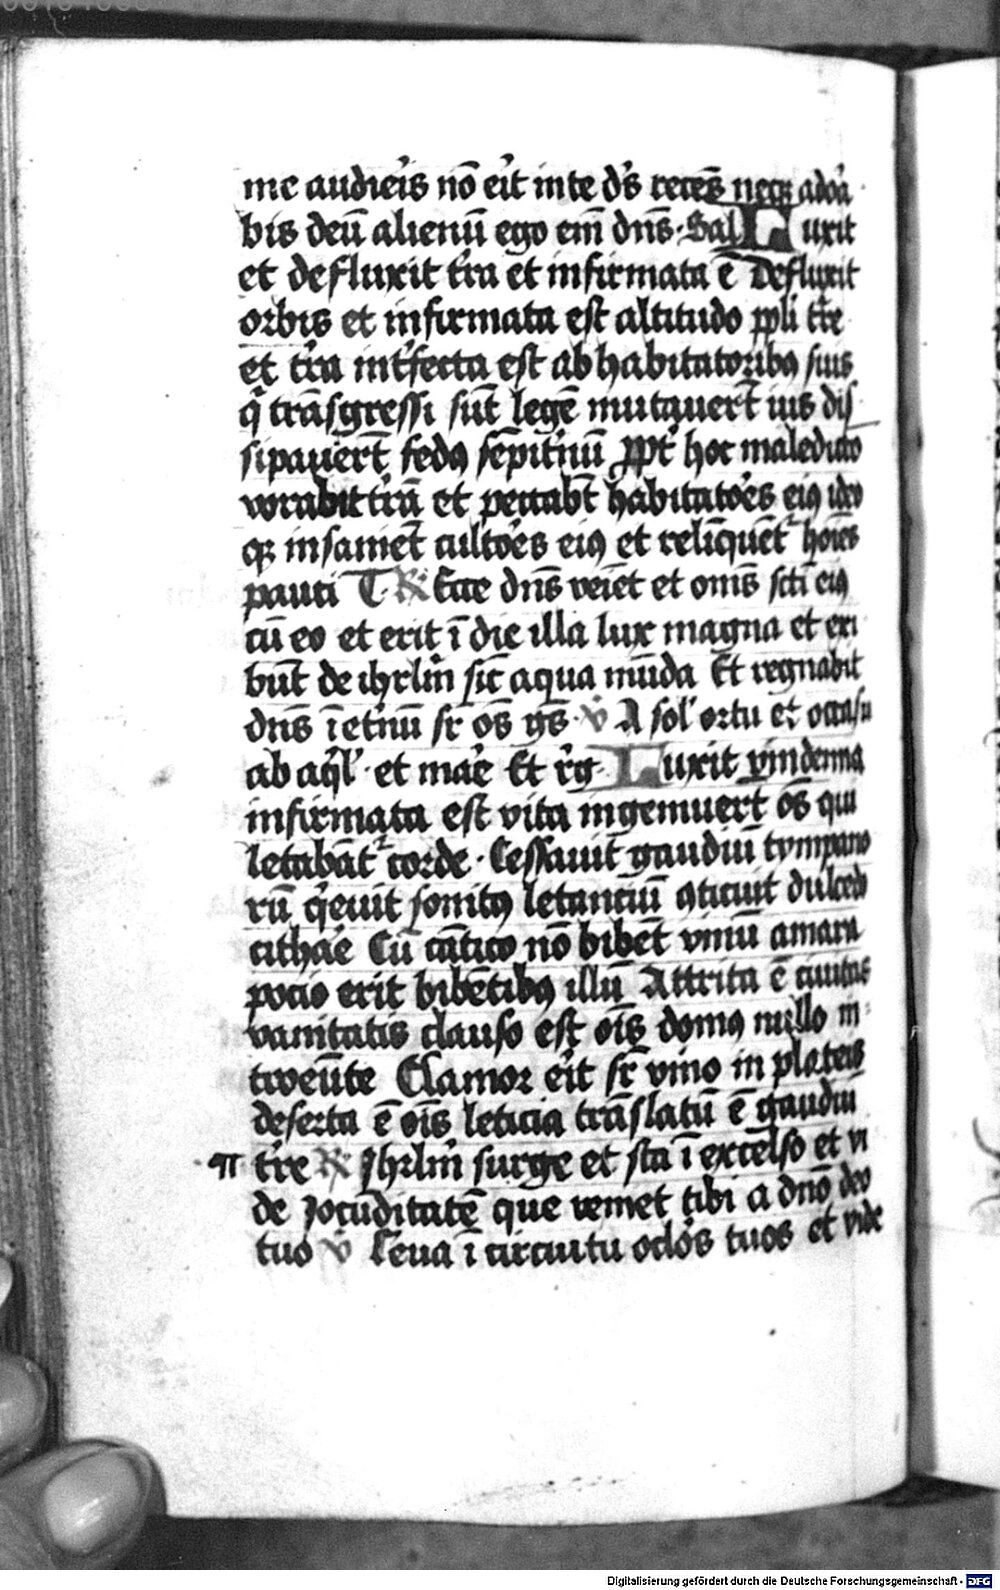 me audieis nō eit in te d's recēs neqꝫ adoa
bis deū alienū ego em̄ dn̄s · Sal Luxit
et defluxit t'ra et infirmata ē Defluxit
orbis et infirmata est altitudo ppli t're
et t'ra int'fecta est ab habitatoribꝰ suis
q' trāsgressi sūt legē mutauer̄t ius dis
sipauer̄t fedꝰ sēpit'nū ꝓpt' hoc maledicto
vorabit t'rā et peccabt̄ habitato'es eiꝰ ideo
qꝫ insaniēt cultoēs eiꝰ et relīquēt' hoīes
pauci T · ℟ Ecce dn̄s veīet et om̄s sc̄ti eiꝰ
cū eo et erit ī die illa lux magna et exi
būt de ihrlm̄ sic̄ aqua mūda Et regnabit
dn̄s ī et'nū sr̄ os̄ gn̄s · ℣ A sol' ortu et occasu
ab aq̄l' · et mae Et r'g · Luxit vindemia
infirmata est vita ingemuer̄t os̄ qui
letabāt' corde · Cessauit gaudiū tympano
rū q'euit sonitꝰ letanciū ꝯticuit dulcedo
cithae Cū cātico nō bibēt vinū amara
pocio erit bibētibꝰ illū Attrita ē ciuitas
vanitatis clausa est oīs domꝰ nullo in
troeūte Clamor eit sr̄ vino in plateis
deserta ē oīs leticia trāslatū ē gaudiū
¶ t're ℟ Jhrlm̄ surge et sta ī excelso et vi
de iocūditatē que veniet tibi a dn̄o deo
tuo ℣ Leua ī circuitu oclo's tuos et vide
Digitalisierung gefördert durch die Deutsche Forschungsgemeinschaft - DFG